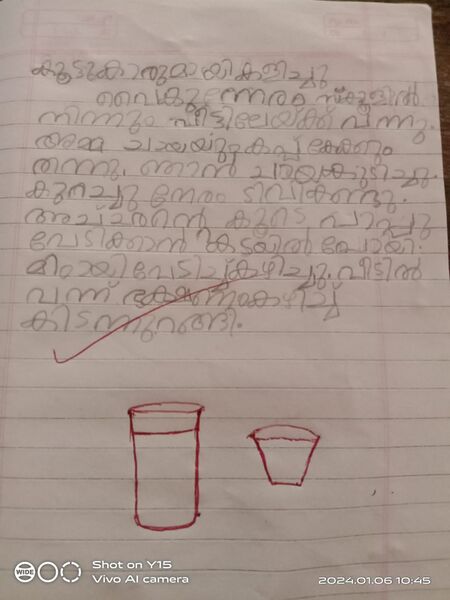 കൂട്ടുകാരുമായി കളിച്ചു
വൈകുന്നേരം സ്കൂളിൽ
നിന്നും വീട്ടിലേയ്ക്ക് വന്നു.
അമ്മ ചായയും കപ്പ കേക്കും
തന്നു. ഞാൻ ചായ കുടിച്ചു.
കുറച്ചു നേരം ടിവി കണ്ടു.
അച്ചന്റെ കൂടെ പാപ്പു
വേടിക്കാൻ കടയിൽ പോയി.
മിഠായി വേടിച്ച് കഴിച്ചു. വീട്ടിൽ
വന്ന് ഭക്ഷണം കഴിച്ച്
കിടന്നുറങ്ങി.
WIDE
Shot on Y15
Vivo AI camera
2024.01.06 10:45